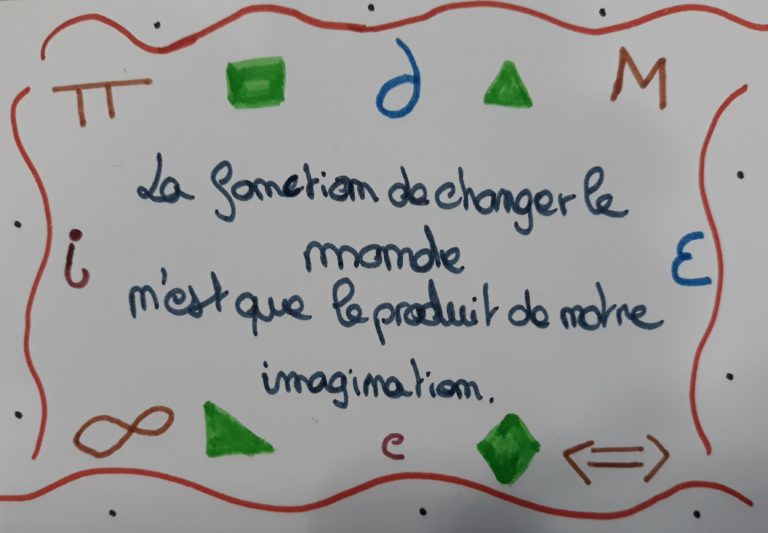 π ∂ M
La fonction de changer le
monde
i ε
n'est que le produit de notre
imagination.
∞ e ⇔